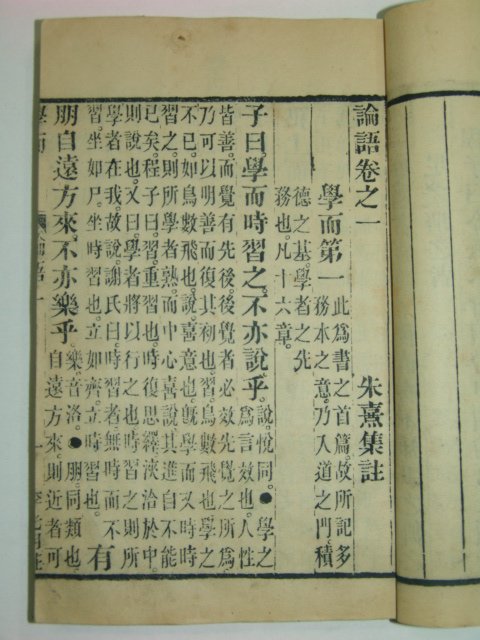 論語卷之一
朱熹集註
學而第一
此爲書之首篇。故所記多
務本之意。乃入道之門。積
德之基。學者之先
務也。凡十六章。
子曰。學而時習之。不亦說乎。
說悅同。●學之
爲言效也。人性
皆善。而覺有先後。後覺者必效先覺之所爲。
乃可以明善而復其初也。習鳥數飛也。學之
不已。如鳥數飛也。說。喜意也。旣學而又時時
習之。則所學者熟。而中心喜說。其進自不能
已矣。程子曰。習。重習也。時復思繹。浹洽於中。
則說也。又曰。學者將以行之也。時習之則所
學者在我。故說。謝氏曰。時習者。無時而不
習。坐如尸。坐時習也。立如齊。立時習也。
有
朋自遠方來。不亦樂乎。
樂音洛。●朋同類也
自遠方來。則近者可